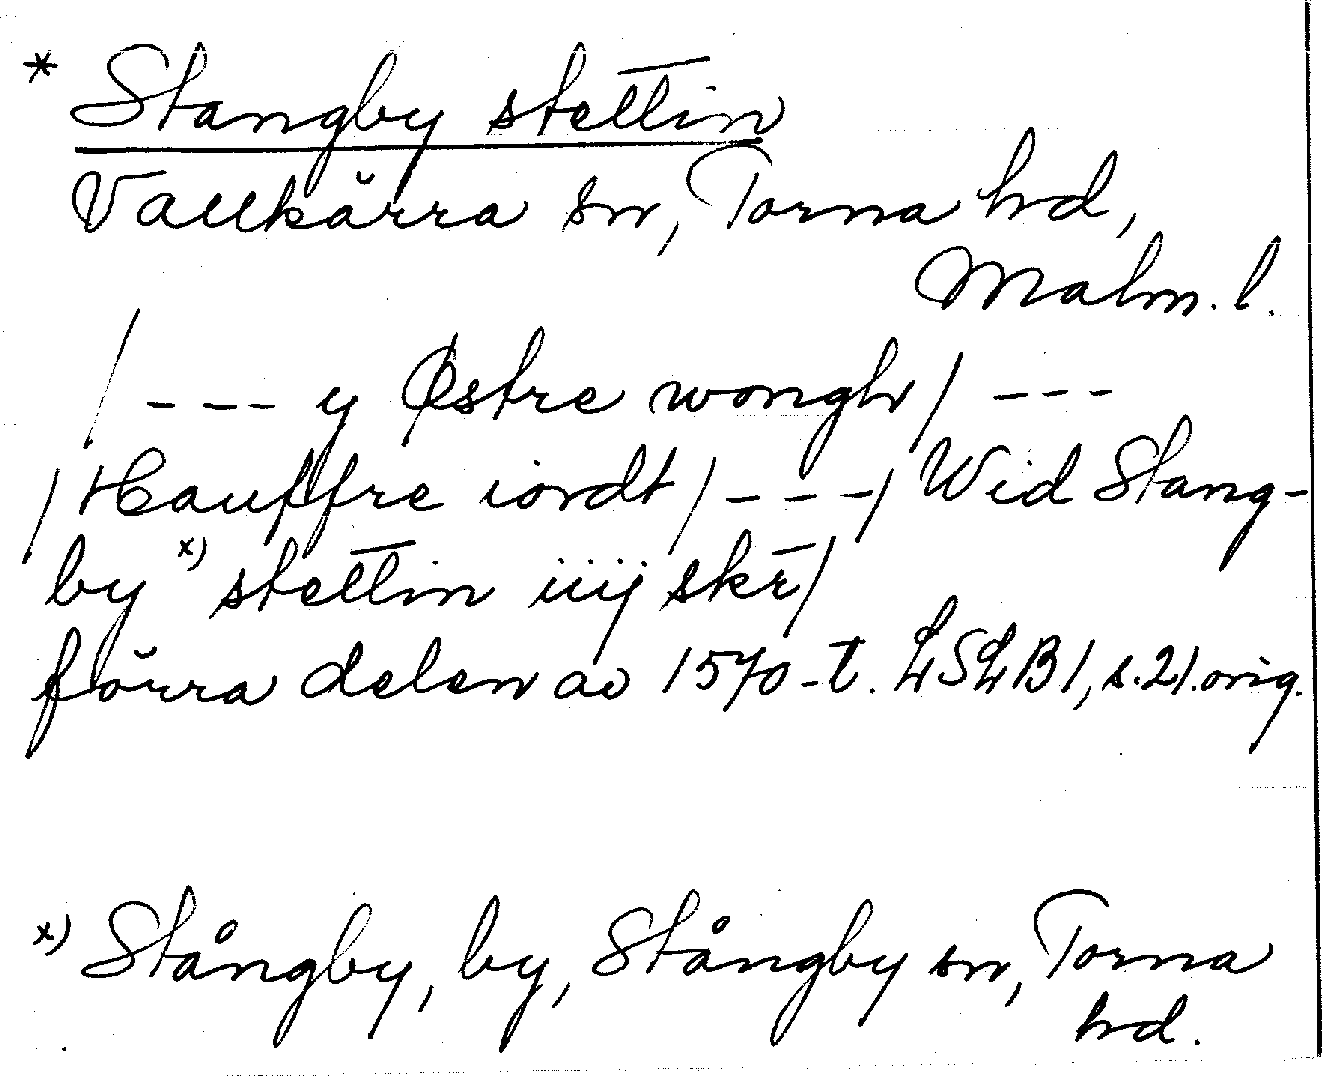 * Stangby stettin
Vallkärra sn, Torna hd,
Malm. l.
/ --- y Østre wongh / ---
/ Hauffre iordt / --- / Wid Stang-
by x) stettin iiij skr̄ /
förra delen av 1570-t. LSLB 1, s. 21. orig.
x) Stångby, by, Stångby sn, Torna
hd.